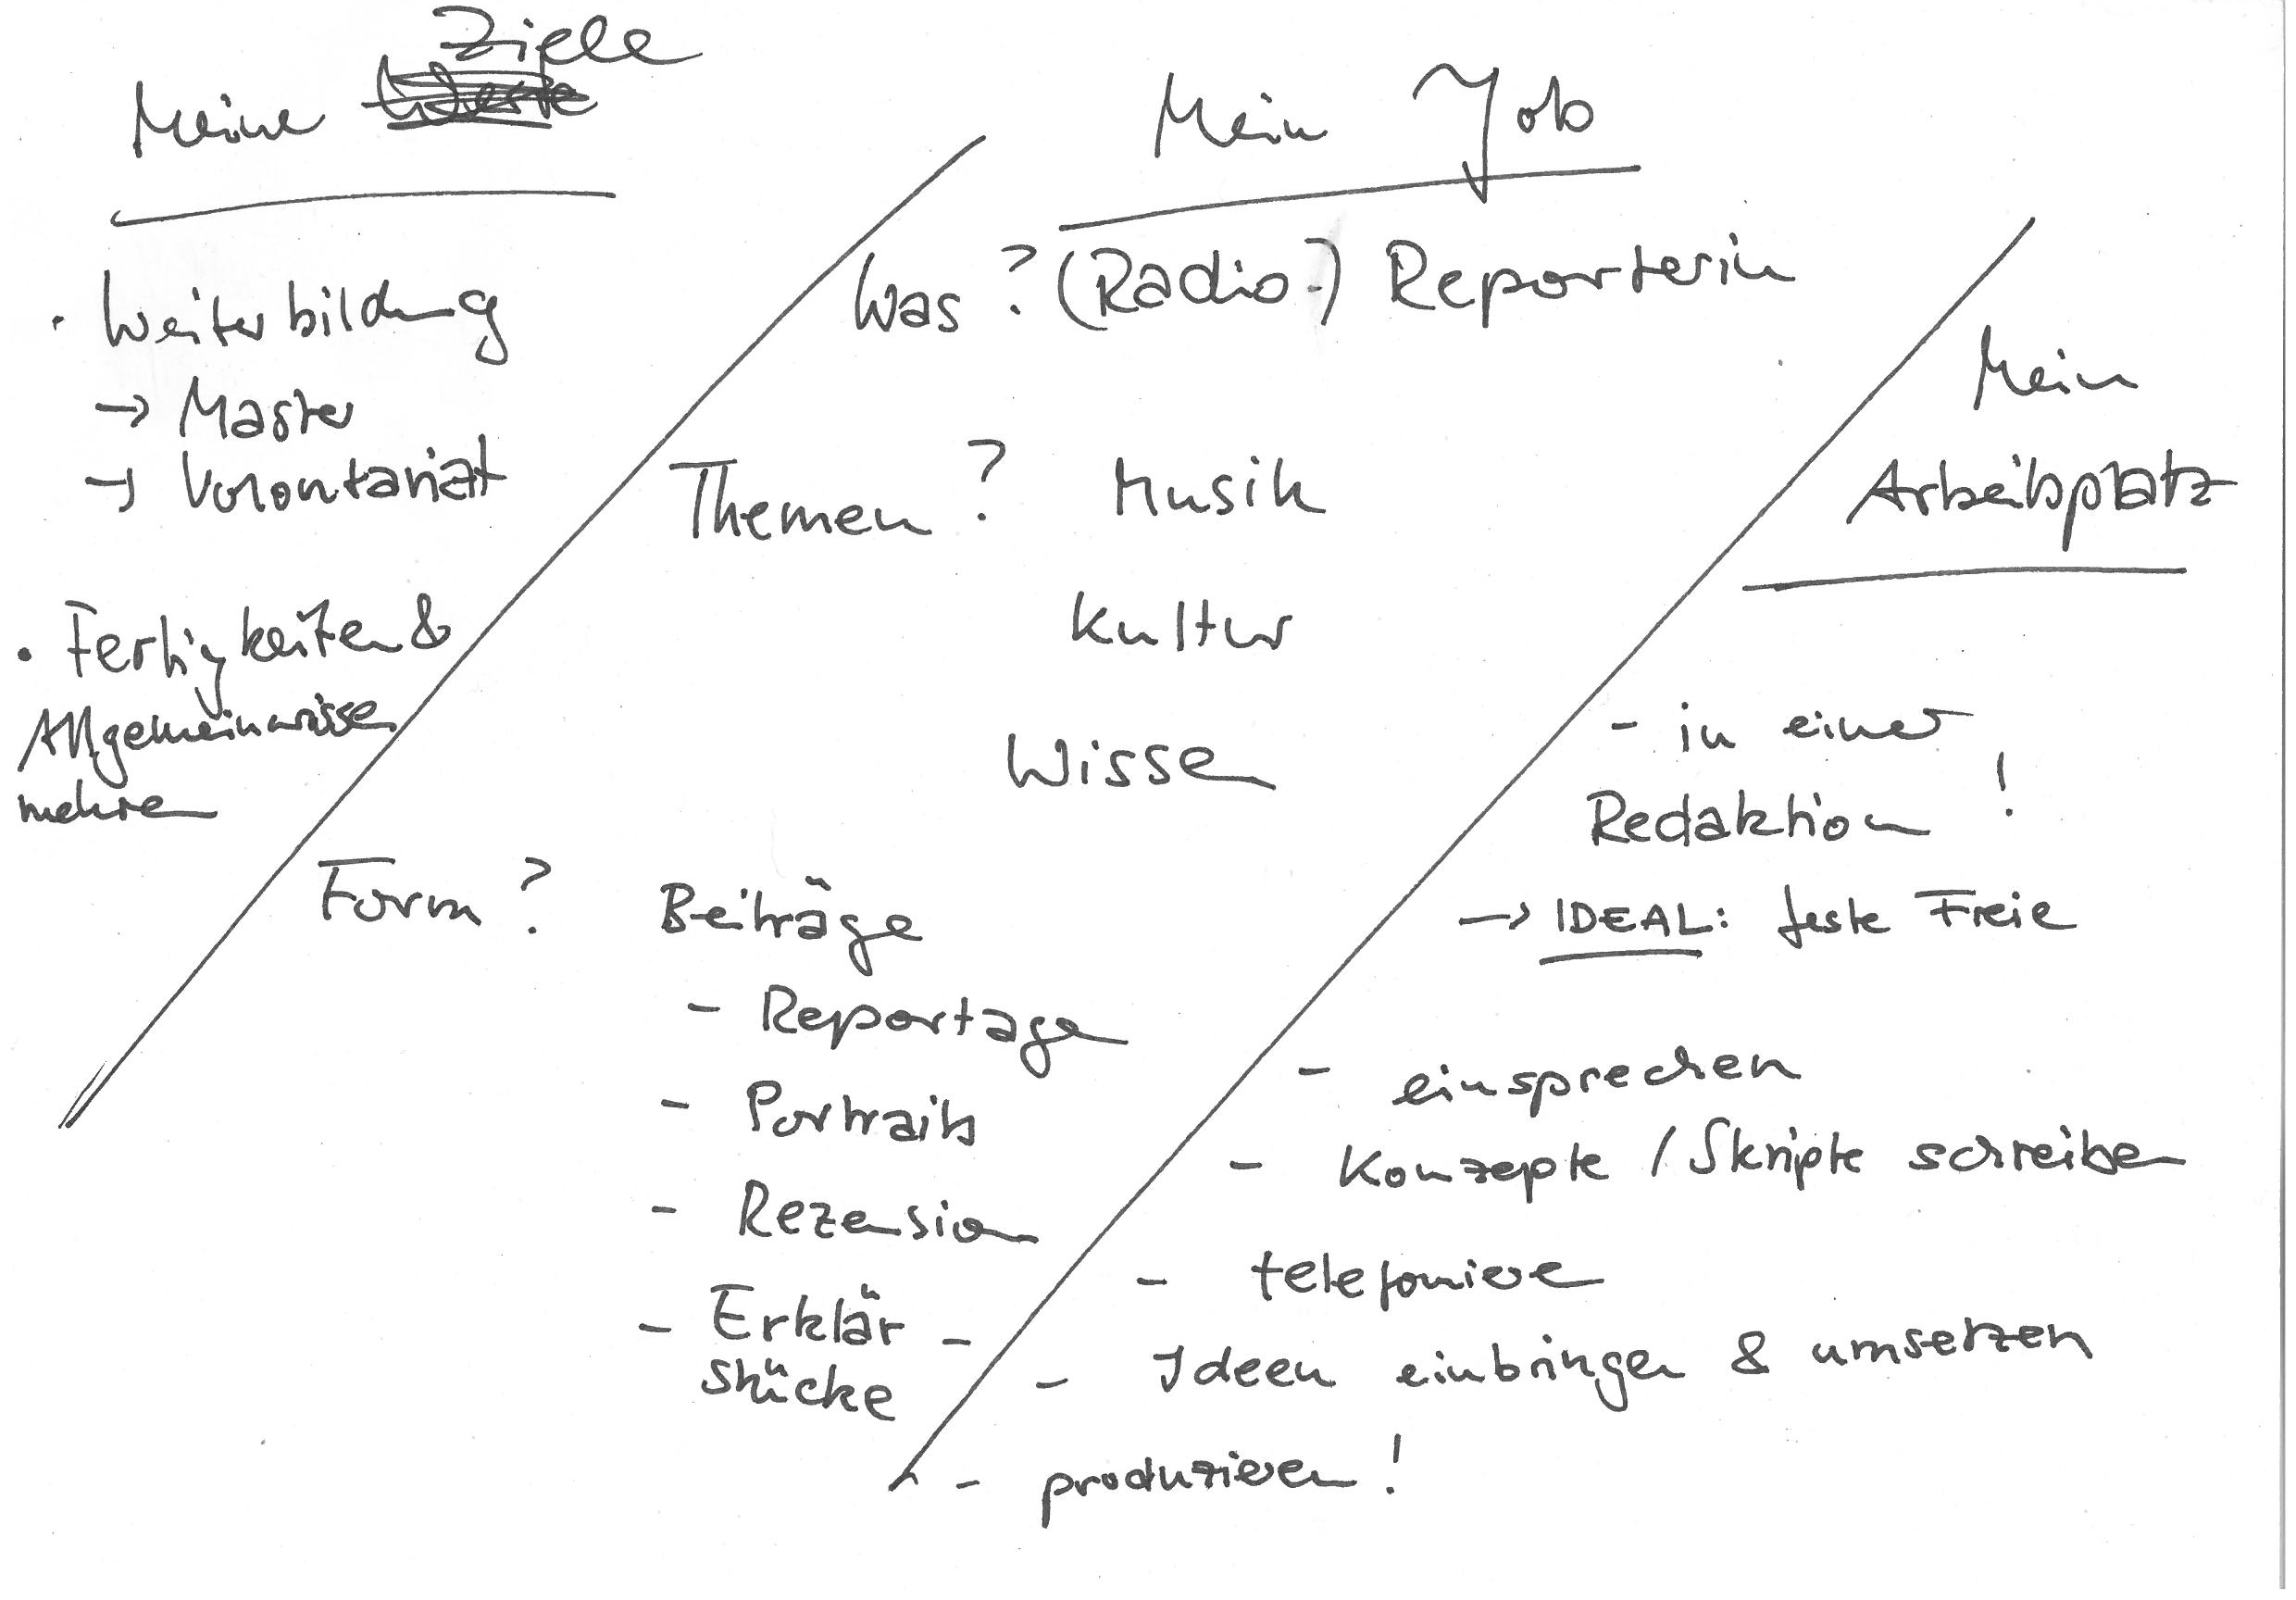 Meine Ziele
• Weiterbildung
→ Master
→ Volontariat
• Fertigkeiten &
Allgemeinwissen
mehren
Mein Job
Was? (Radio-) Reporterin
Themen? Musik
Kultur
Wissen
Form? Beiträge
- Reportagen
- Portraits
- Rezension
- Erklär-
stücke
Mein
Arbeitsplatz
- in einer
Redaktion!
→ IDEAL: feste Freie
- einsprechen
- Konzepte / Skripte schreiben
- telefonieren
- Ideen einbringen & umsetzen
- produzieren!